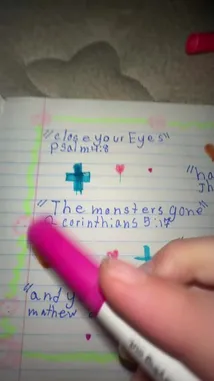 "close your Eyes"
psalm 4:8
"The monsters gone"
2 corinthians 5:17
"and y
mathew